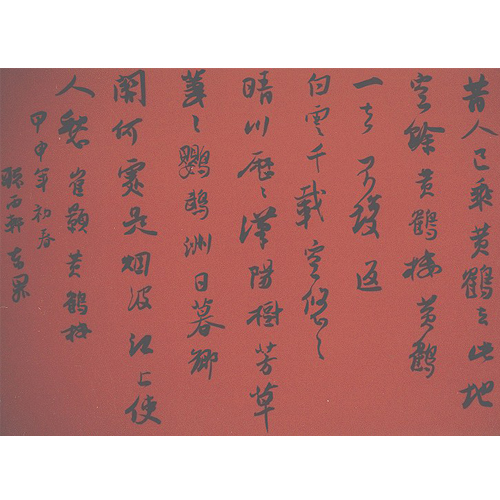 昔人已乘黄鶴去此地
空餘黄鶴楼黄鶴
一去不復返
白雲千載空悠々
晴川歷々漢陽樹芳草
萋々鸚鵡洲日暮鄉
關何處是烟波江上使
人愁崔顥黄鶴楼
甲申年初春